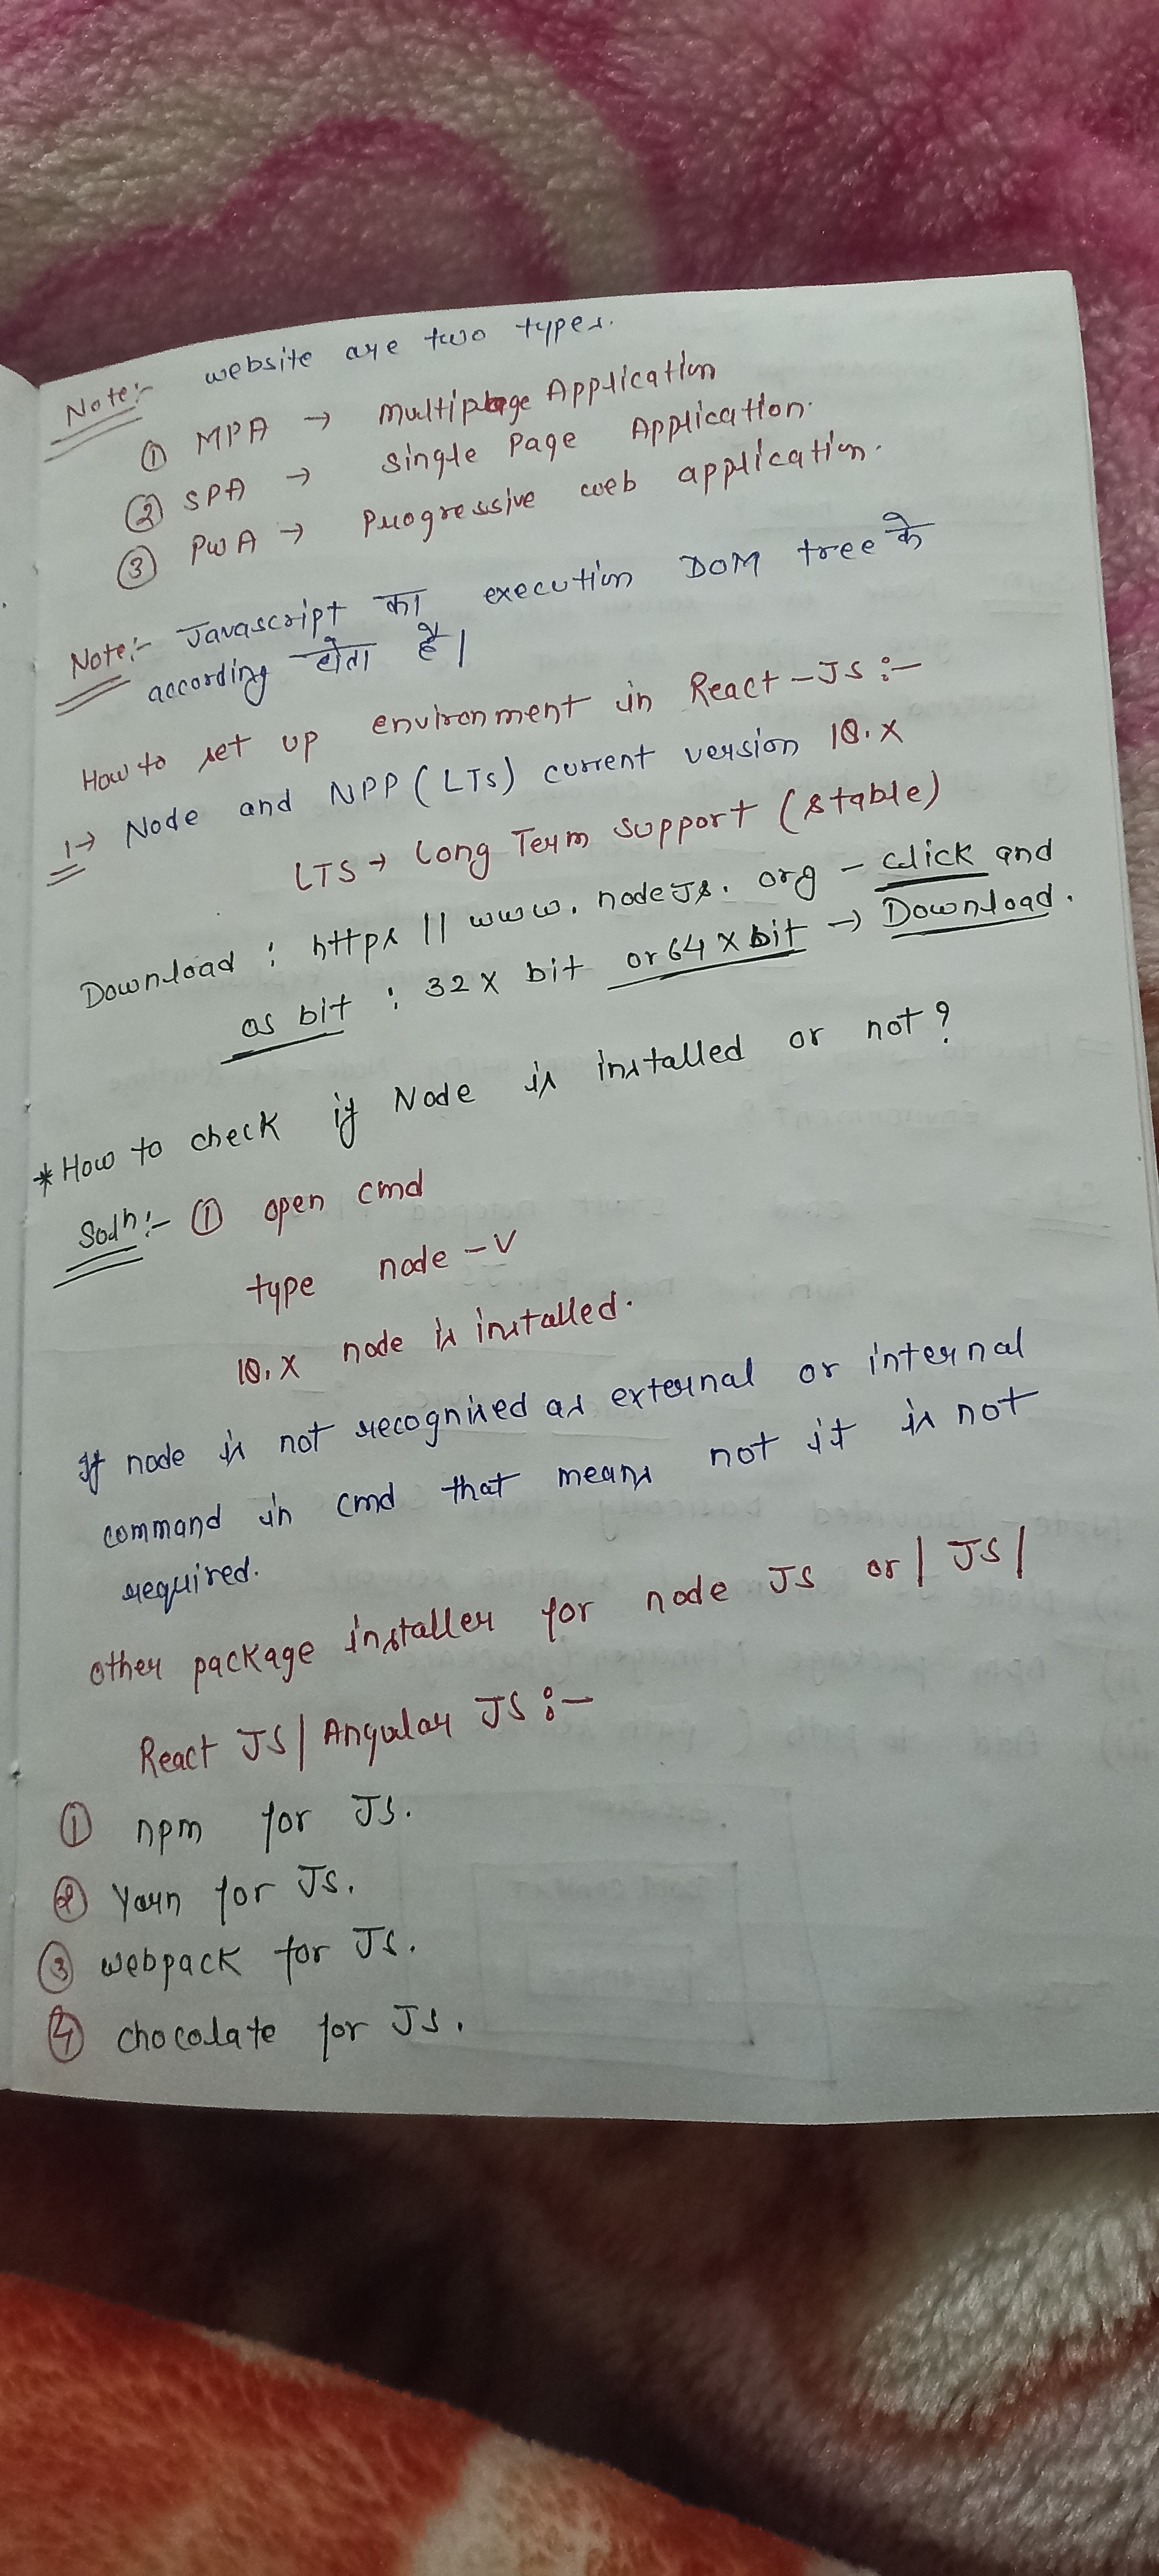 Note:- website are two types.
① MPA → Multipage Application
② SPA → Single Page Application.
③ PWA → Progressive web application.
Note:- Javascript का execution DOM tree के
according होता है।
How to set up environment in React-JS :-
1→ Node and NPP (LTS) current version 18.X
LTS → Long Term Support (stable)
Download : https || www. nodeJs. org - click and
os bit : 32 X bit or 64 X bit → Download.
* How to check if Node is installed or not?
Soln:- ① open cmd
type node -v
18.X node is installed.
If node is not recognised as external or internal
command in cmd that means not it is not
required.
other package installer for node JS or | JS |
React JS | Angular JS :-
① npm for JS.
② Yarn for JS.
③ webpack for JS.
④ chocolate for JS.